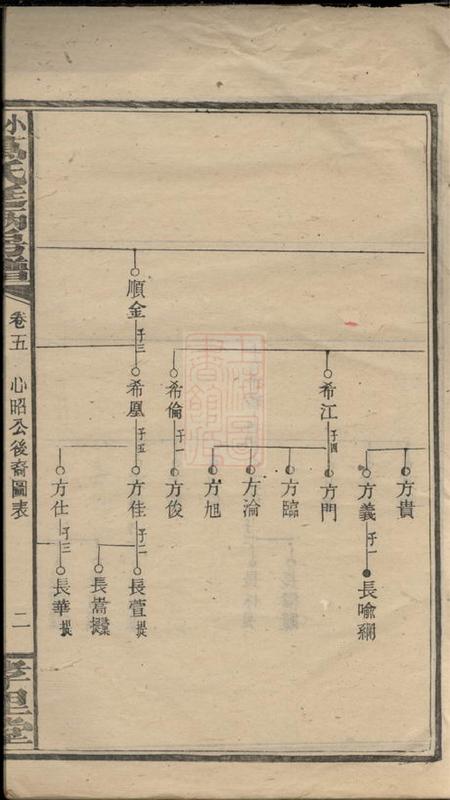 方貴
方義 子一
長喻
希江 子四
方門
方臨
方淪
方旭
希倫 子一
方俊
順金 子三
希鳳 子五
方佳 子二
長萱
長嵩
方仕 子三
長華
卷五 心昭公後裔圖表 二